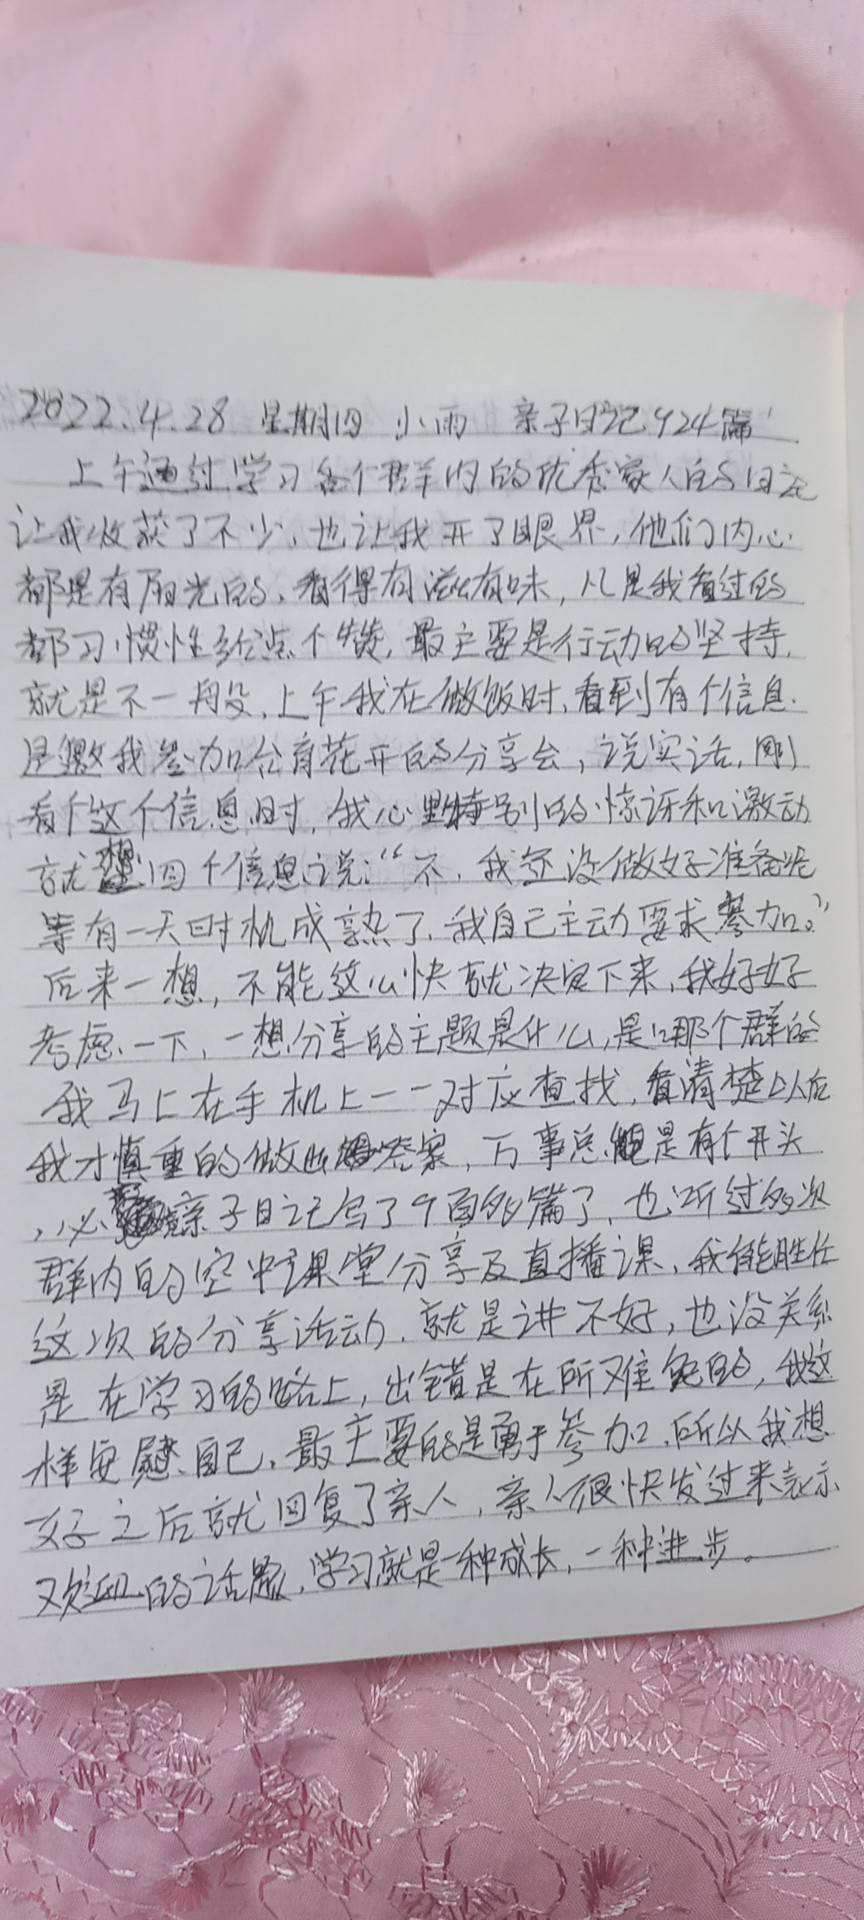 2022.4.28 星期四 小雨 亲子日记924篇
上午通过学习各个群内的优秀家人的日记
让我收获了不少,也让我开了眼界,他们内心
都是有阳光的,看得有滋有味,凡是我看过的
都习惯性给点个赞,最主要是行动的坚持,
就是不一般,上午我在做饭时,看到有个信息
是邀我参加公育花开的分享会,说实话,刚
看个这个信息时,我心里特别的惊讶和激动
就想回个信息说:“不,我还没做好准备呢
等有一天时机成熟了,我自己主动要求参加。”
后来一想,不能这么快就决定下来,我好好
考虑一下,一想分享的主题是什么,是哪个群的
我马上在手机上一一对应查找,看清楚以后
我才慎重的做出答案,万事总是有个开头
亲子日记写了9百多篇了,也听过多次
群内的空中课堂分享及直播课,我能胜任
这次的分享活动,就是讲不好,也没关系
是在学习的路上,出错是在所难免的,我这
样安慰自己,最主要的是勇于参加,所以我想
好之后就回复了亲人,亲人很快发过来表示
欢迎的话题,学习就是一种成长,一种进步。